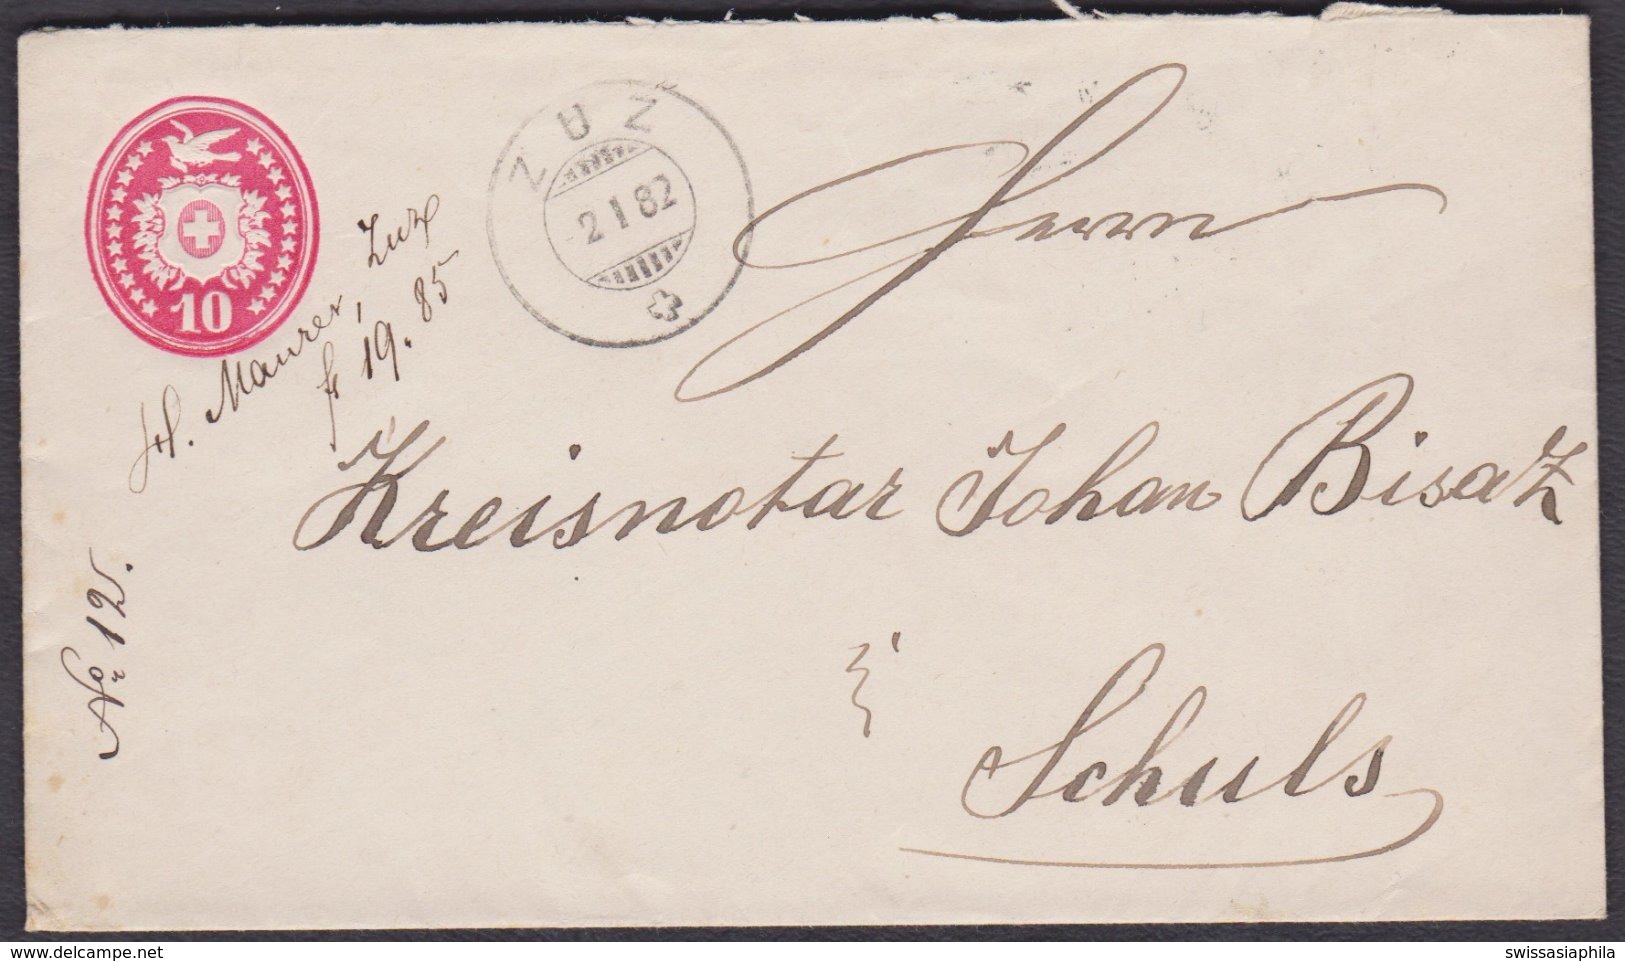 10
ZUZ
2 I 82
H. Maurer, Zuz
fr 19. 85
Herrn
Kreisnotar Johan Bisatz
Schuls
No 12.
delcampe.net
swissasiaphila